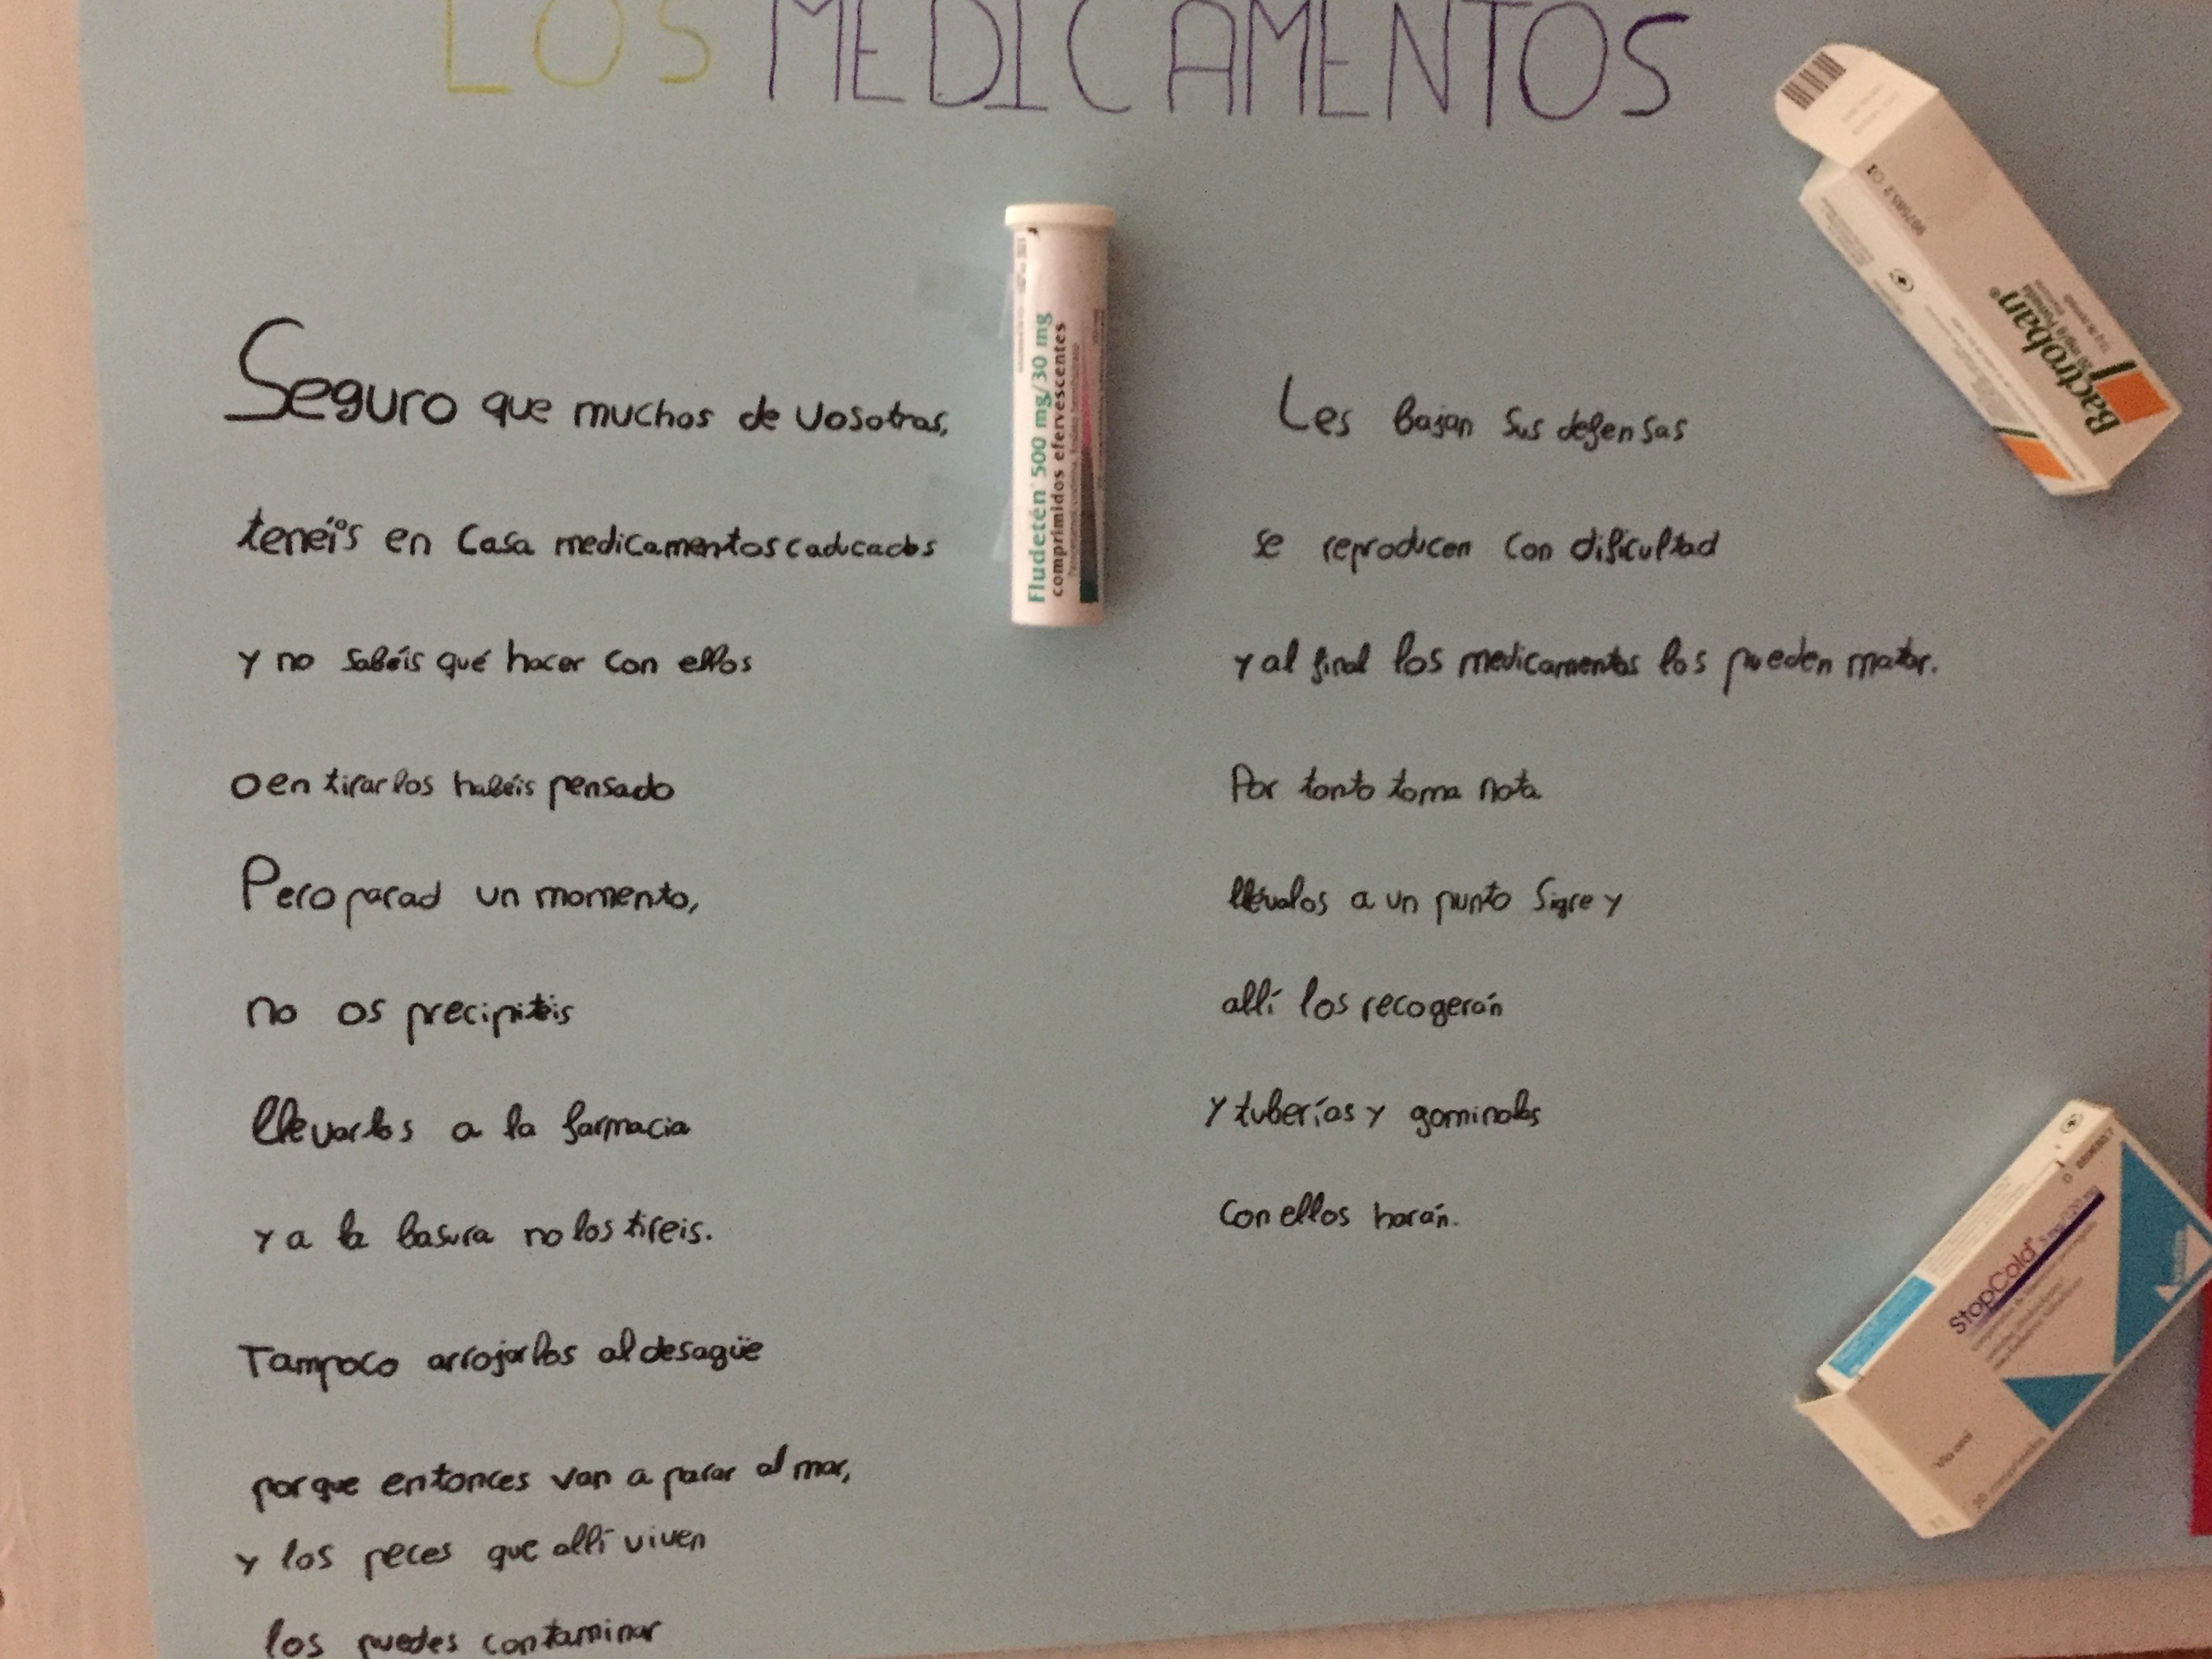 LOS MEDICAMENTOS
Seguro que muchos de vosotros,
tenéis en casa medicamentos caducados
y no sabéis qué hacer con ellos
o en tirarlos habéis pensado
Pero parad un momento,
no os precipitéis
llevarlos a la farmacia
y a la basura no los tireis.
Tampoco arrojarlos al desagüe
porque entonces van a parar al mar,
y los peces que allí viven
los puedes contaminar
Les bajan sus defensas
se reproducen con dificultad
y al final los medicamentos los pueden matar.
Por tanto toma nota
llévalos a un punto Sigre y
allí los recogerán
y tuberías y gominolas
con ellos harán.
Fludetén 500 mg/30 mg
comprimidos efervescentes
Bactroban
20 mg/g Pomada
StopCold
Vía oral
20 comprimidos